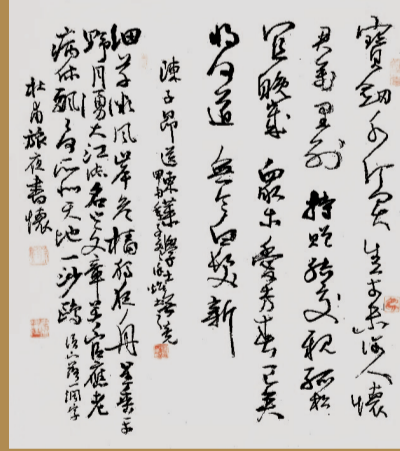 寶劍千金買生平未許人懷
君萬里別持贈結交親孤松
宜晚歲衆木愛芳春已矣
將何道無令白髮新
陳子昂送東萊學士無競
細草微風岸危檣獨夜舟星垂平
野月湧大江流名豈文章著官應老
病休飄飄何所似天地一沙鷗 落一闊字
杜甫旅夜書懷